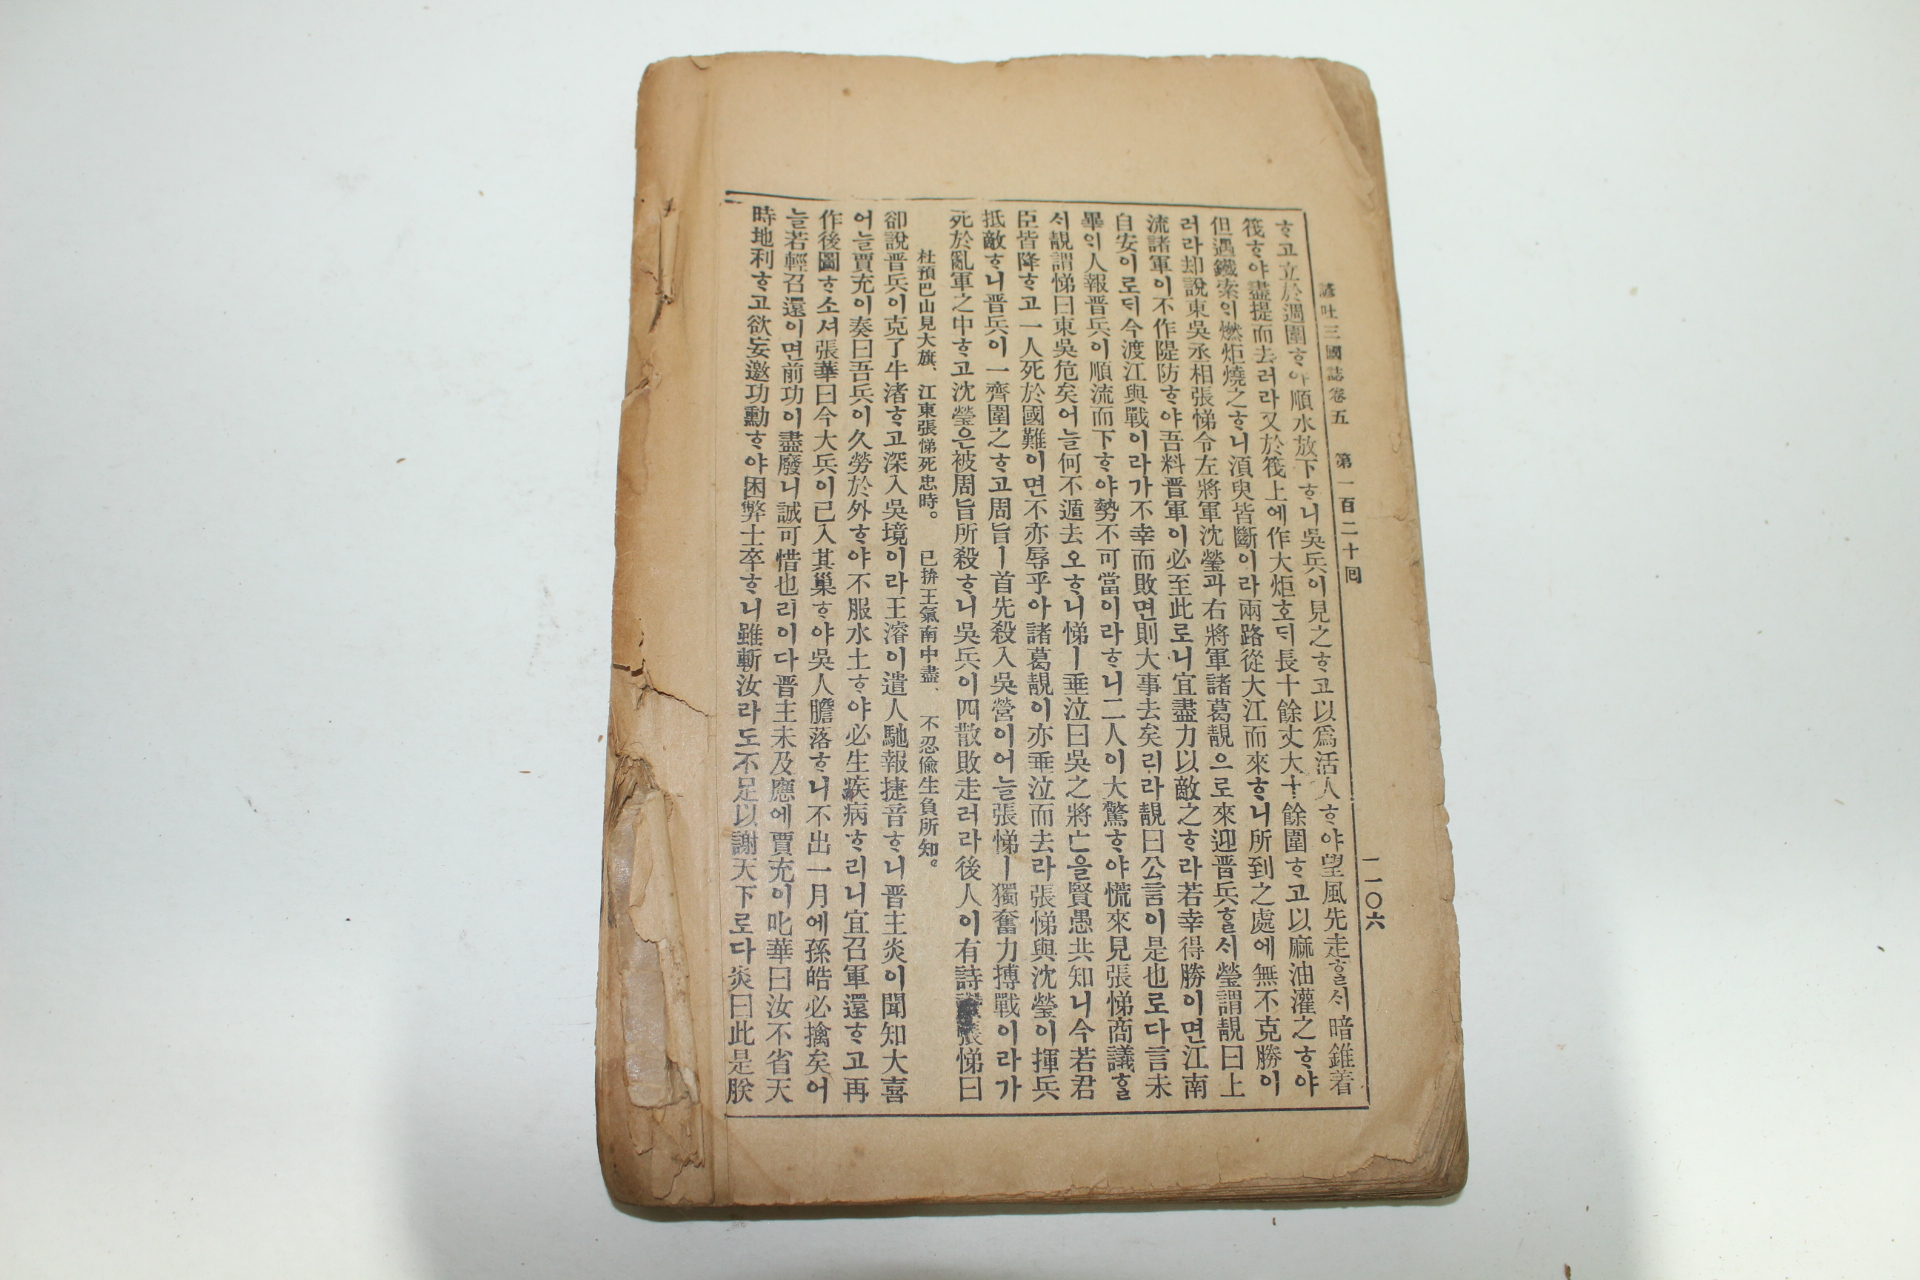 諺吐三國誌卷五 第一百二十回 二〇六
ᄒᆞ고立於週圍ᄒᆞ야順水放下ᄒᆞ니吳兵이見之ᄒᆞ고以爲活人ᄒᆞ야望風先走ᄒᆞᆯᄉᆡ暗錐着
筏ᄒᆞ야盡提而去러라又於筏上에作大炬호ᄃᆡ長十餘丈大十餘圍ᄒᆞ고以麻油灌之ᄒᆞ야
但遇鐵索의燃炬燒之ᄒᆞ니湏臾皆斷이라兩路從大江而來ᄒᆞ니所到之處에無不克勝이
러라却說東吳丞相張悌令左將軍沈瑩과右將軍諸葛靚으로來迎晋兵ᄒᆞᆯᄉᆡ瑩謂靚曰上
流諸軍이不作隄防ᄒᆞ야吾料晋軍이必至此로니宜盡力以敵之ᄒᆞ라若幸得勝이면江南
自安이로ᄃᆡ今渡江與戰이라가不幸而敗면則大事去矣리라靚曰公言이是也로다言未
畢의人報晋兵이順流而下ᄒᆞ야勢不可當이라ᄒᆞ니二人이大驚ᄒᆞ야慌來見張悌商議ᄒᆞᆯ
ᄉᆡ靚謂悌曰東吳危矣어늘何不遁去오ᄒᆞ니悌ㅣ垂泣曰吳之將亡을賢愚共知니今若君
臣皆降ᄒᆞ고一人死於國難이면不亦辱乎아諸葛靚이亦垂泣而去라張悌與沈瑩이揮兵
抵敵ᄒᆞ니晋兵이一齊圍之ᄒᆞ고周旨ㅣ首先殺入吳營이어늘張悌ㅣ獨奮力搏戰이라가
死於亂軍之中ᄒᆞ고沈瑩은被周旨所殺ᄒᆞ니吳兵이四散敗走러라後人이有詩張悌曰
杜預巴山見大旗、江東張悌死忠時。 已拚王氣南中盡、不忍偸生負所知。
卻說晋兵이克了牛渚ᄒᆞ고深入吳境이라王濬이遣人馳報捷音ᄒᆞ니晋主炎이聞知大喜
어늘賈充이奏曰吾兵이久勞於外ᄒᆞ야不服水土ᄒᆞ야必生疾病ᄒᆞ리니宜召軍還ᄒᆞ고再
作後圖ᄒᆞ소셔張華曰今大兵이已入其巢ᄒᆞ야吳人膽落ᄒᆞ니不出一月에孫皓必擒矣어
늘若輕召還이면前功이盡廢니誠可惜也리이다晋主未及應에賈充이叱華曰汝不省天
時地利ᄒᆞ고欲妄邀功勳ᄒᆞ야困弊士卒ᄒᆞ니雖斬汝라도不足以謝天下로다炎曰此是朕